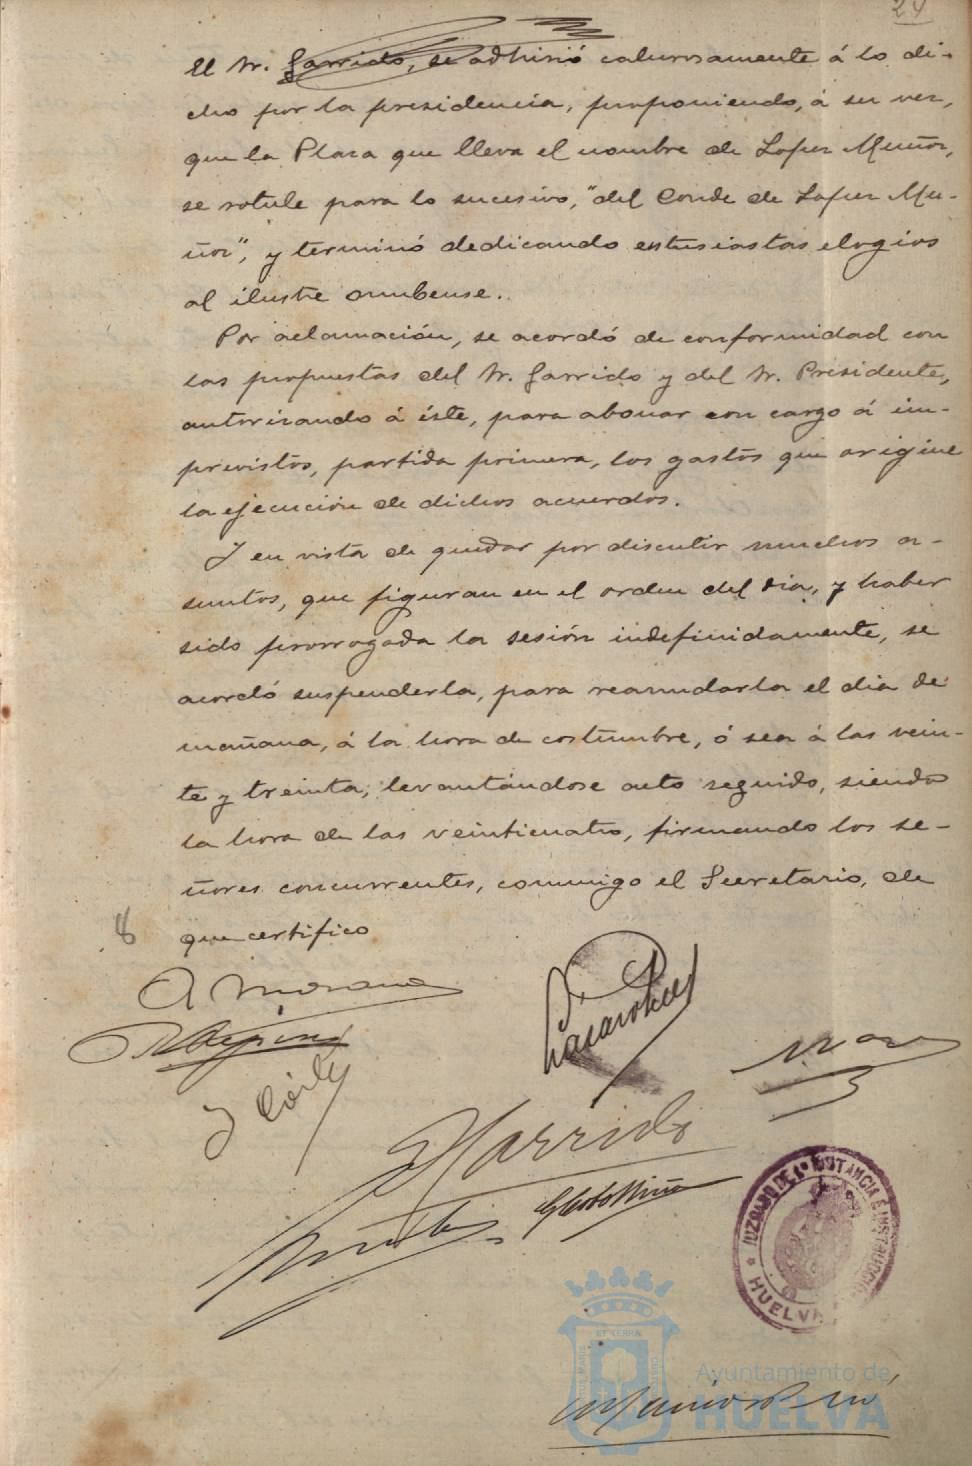 24
El Sr. Garrido, se adhirió calurosamente á lo di-
cho por la presidencia, proponiendo, á su vez,
que la Plaza que lleva el nombre de Lopez Muñoz,
se rotule para lo sucesivo, "del Conde de Lopez Mu-
ñoz", y terminó dedicando entusiastas elogios
al ilustre onubense.
Por aclamación, se acordó de conformidad con
las propuestas del Sr. Garrido y del Sr. Presidente,
autorizando á éste, para abonar con cargo á im-
previstos, partida primera, los gastos que origine
la ejecución de dichos acuerdos.
Y en vista de quedar por discutir muchos a-
suntos, que figuran en el orden del dia, y haber
sido prorrogada la sesión indefinidamente, se
acordó suspenderla, para reanudarla el dia de
mañana, á la hora de costumbre, ó sea á las vein-
te y treinta, levantándose acto seguido, siendo
la hora de las veinticuatro, firmando los se-
ñores concurrentes, conmigo el Secretario, de
que certifico
8
A Moreno
Garrido
JUZGADO DE 1ª INSTANCIA É INSTRUCCIÓN
HUELVA
Ayuntamiento de
HUELVA